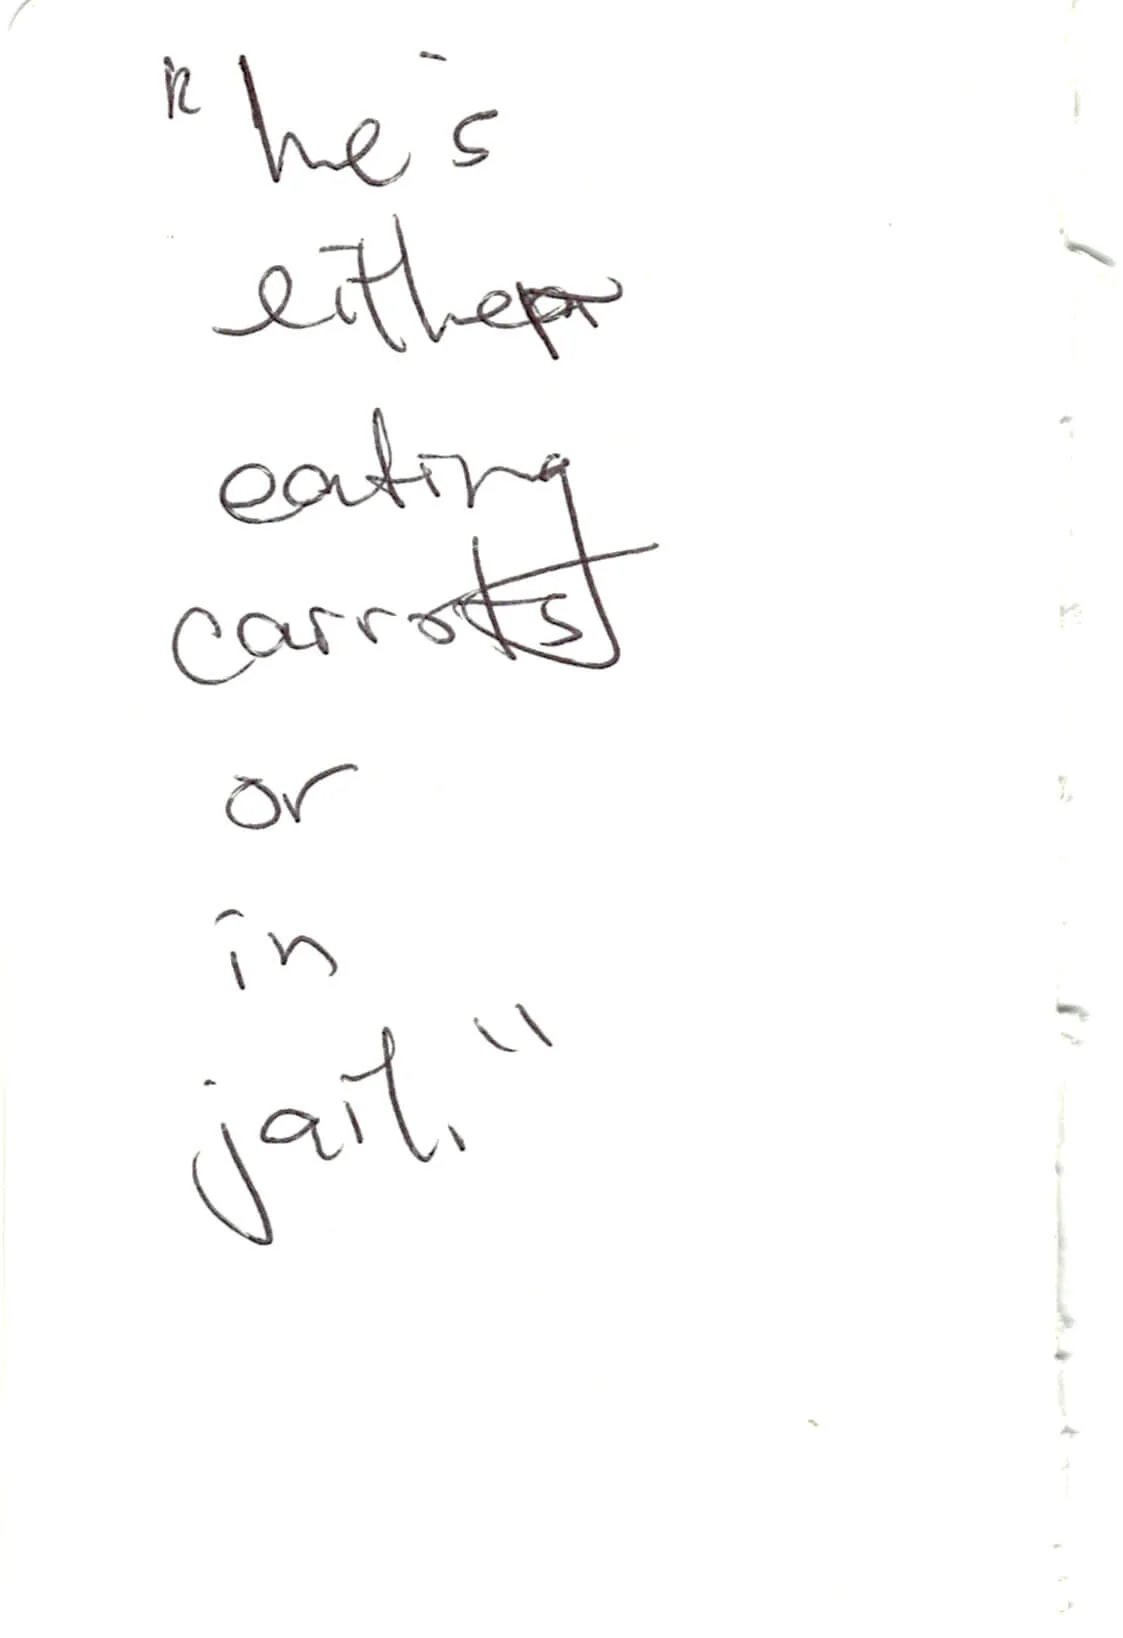 "he's
either
eating
carrots
or
in
jail."